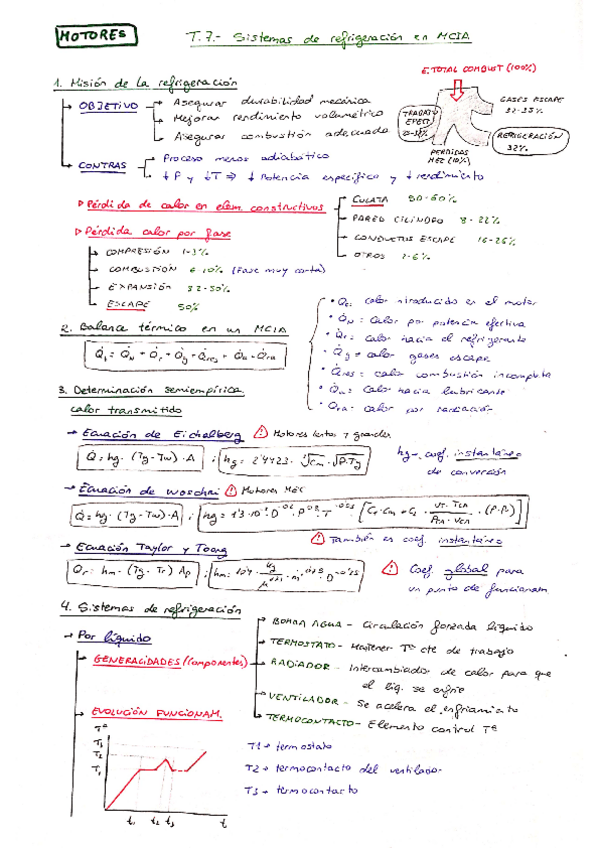 MOTORES
T.7.- Sistemas de refrigeración en MCIA
1. Misión de la refrigeración
OBJETIVO
Asegurar durabilidad mecánica
Mejorar rendimiento volumétrico
Asegurar combustión adecuada
CONTRAS
Proceso menos adiabático
↓P y ↓T ⇒ ↓ Potencia específica y ↓ rendimiento
E. TOTAL COMBUST (100%)
GASES ESCAPE
TRABAJO
EFECT.
REFRIGERACIÓN
32%
PERDIDAS
MEC (10%)
Pérdida de calor en elem. constructivos
CULATA 50-60%
PARED CILINDRO 8-22%
CONDUCTOS ESCAPE 16-26%
OTROS 2-6%
Pérdida calor por fase
COMPRESIÓN 1-3%
COMBUSTIÓN 6-10% (Fase muy corta)
EXPANSIÓN 32-50%
ESCAPE 50%
2. Balance térmico en un MCIA
calor introducido en el motor
calor por potencia efectiva
calor hacia el refrigerante
calor gases escape
calor combustión incompleta
calor hacia lubricante
calor por radiación
3. Determinación semiempírica
calor transmitido
Ecuación de Eichelberg
Motores lentos y grandes
Q̇ = hg · (Tg - Tw) · A
hg → coef. instantáneo
de convección
Ecuación de Woschni
Motores MEC
Q̇ = hg · (Tg - Tw) · A
También es coef. instantáneo
Ecuación Taylor y Toong
Coef. global para
un punto de funcionam.
4. Sistemas de refrigeración
Por líquido
GENERALIDADES (Componentes)
BOMBA AGUA - Circulación forzada líquido
TERMOSTATO - Mantener Tª cte de trabajo
RADIADOR - Intercambiador de calor para que
el líq. se enfríe
VENTILADOR - Se acelera el enfriamiento
TERMOCONTACTO - Elemento control Tª
EVOLUCIÓN FUNCIONAM.
Tª
T3
T2
T1
t1 t2 t3 t
T1 → termostato
T2 → termocontacto del ventilador
T3 → termocontacto